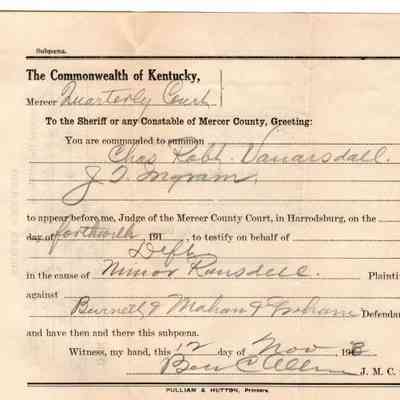 Subpœna.
The Commonwealth of Kentucky,
Mercer Quarterly Court
To the Sheriff or any Constable of Mercer County, Greeting:
You are commanded to summon
Chas Robt. Vanarsdall.
J. T. Ingram,
to appear before me, Judge of the Mercer County Court, in Harrodsburg, on the
day of forthwith 191 , to testify on behalf of
Deft
in the cause of Minor Ransdell. Plaintiff
against Burnett & Mahan & Graham Defenda
and have then and there this subpœna.
Witness, my hand, this 12 day of Nov 191
Ben C Allen J. M. C.
PULLIAM & HUTTON, Printers.